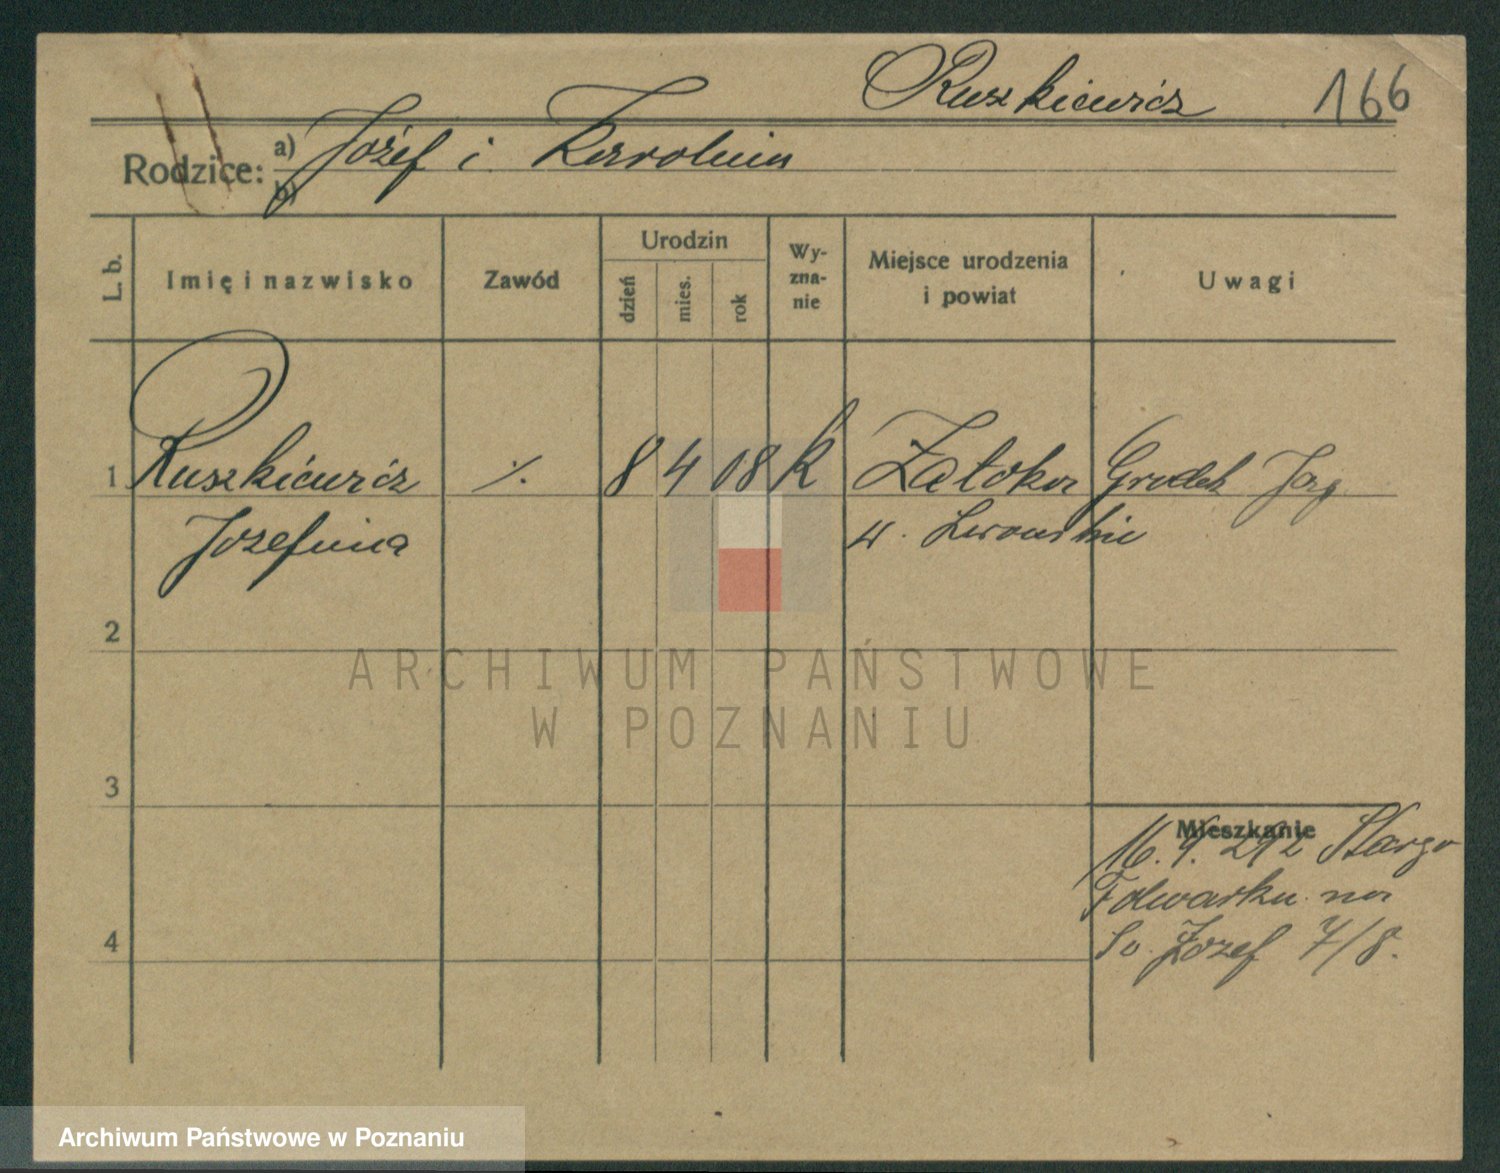 Ruszkiewicz 166
Rodzice: a) Józef i Karolina
b)
L. b. Imię i nazwisko Zawód Urodzin dzień mies. rok Wy-zna-nie Miejsce urodzenia i powiat Uwagi
1 Ruszkiewicz ./. 8 4 08 k Zatoka Grodek Jag
Jozefina w. Lwowskie
2
3
Mieszkanie
16. 9. Starzo
Folwarku na
Jozef 7/8.
4
ARCHIWUM PAŃSTWOWE
W POZNANIU
Archiwum Państwowe w Poznaniu